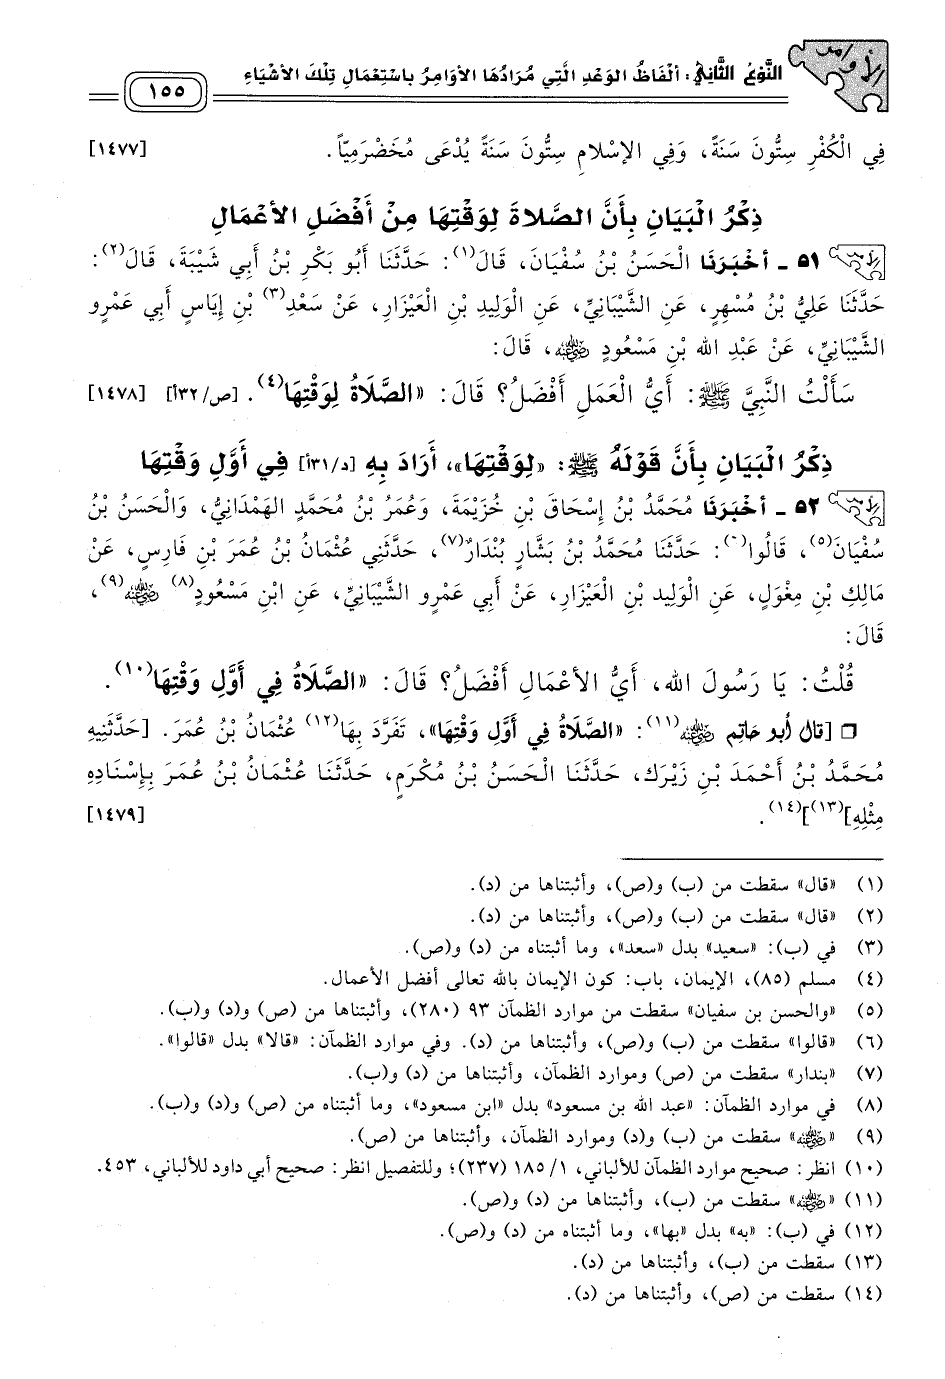 الأوامر
النَّوْعُ الثَّانِي: ألفَاظُ الوَعْدِ الَّتِي مُرَادُهَا الأوَامِرُ باسْتِعْمَالِ تِلْكَ الأشْيَاءِ
١٥٥
فِي الْكُفْرِ سِتُّونَ سَنَةً، وَفِي الإسْلامِ سِتُّونَ سَنَةً يُدْعَى مُخَضْرَمِيّاً. [١٤٧٧]
ذِكْرُ الْبَيَانِ بِأَنَّ الصَّلاةَ لِوَقْتِهَا مِنْ أَفْضَلِ الأعْمَالِ
٥١ - أخْبَرَنَا الْحَسَنُ بْنُ سُفْيَانَ، قَالَ(١): حَدَّثَنَا أَبُو بَكْرِ بْنُ أَبِي شَيْبَةَ، قَالَ(٢):
حَدَّثَنَا عَلِيُّ بْنُ مُسْهِرٍ، عَنِ الشَّيْبَانِيِّ، عَنِ الْوَلِيدِ بْنِ الْعَيْزَارِ، عَنْ سَعْدِ(٣) بْنِ إِيَاسٍ أَبِي عَمْرٍو
الشَّيْبَانِيِّ، عَنْ عَبْدِ الله بْنِ مَسْعُودٍ رضي الله عنه، قَالَ:
سَأَلْتُ النَّبِيَّ ﷺ: أَيُّ الْعَمَلِ أَفْضَلُ؟ قَالَ: «الصَّلَاةُ لِوَقْتِهَا»(٤). [ص/٣٢أ] [١٤٧٨]
ذِكْرُ الْبَيَانِ بِأَنَّ قَوْلَهُ ﷺ: «لِوَقْتِهَا»، أَرَادَ بِهِ [د/٣١أ] فِي أَوَّلِ وَقْتِهَا
٥٢ - أخْبَرَنَا مُحَمَّدُ بْنُ إِسْحَاقَ بْنِ خُزَيْمَةَ، وَعُمَرُ بْنُ مُحَمَّدٍ الهَمْدَانِيُّ، وَالْحَسَنُ بْنُ
سُفْيَانَ(٥)، قَالُوا(٦): حَدَّثَنَا مُحَمَّدُ بْنُ بَشَّارٍ بُنْدَارٌ(٧)، حَدَّثَنِي عُثْمَانُ بْنُ عُمَرَ بْنِ فَارِسٍ، عَنْ
مَالِكِ بْنِ مِغْوَلٍ، عَنِ الْوَلِيدِ بْنِ الْعَيْزَارِ، عَنْ أَبِي عَمْرٍو الشَّيْبَانِيِّ، عَنِ ابْنِ مَسْعُودٍ(٨) رضي الله عنه(٩)،
قَالَ:
قُلْتُ: يَا رَسُولَ الله، أَيُّ الأعْمَالِ أَفْضَلُ؟ قَالَ: «الصَّلَاةُ فِي أَوَّلِ وَقْتِهَا»(١٠).
❒ [قال أبو حاتم رضي الله عنه(١١): «الصَّلَاةُ فِي أَوَّلِ وَقْتِهَا»، تَفَرَّدَ بِهَا(١٢) عُثْمَانُ بْنُ عُمَرَ. [حَدَّثَنِيهِ
مُحَمَّدُ بْنُ أَحْمَدَ بْنِ زَيْرَك، حَدَّثَنَا الْحَسَنُ بْنُ مُكْرَمٍ، حَدَّثَنَا عُثْمَانُ بْنُ عُمَرَ بِإِسْنَادِهِ
مِثْلِهِ](١٣)](١٤). [١٤٧٩]
(١) «قال» سقطت من (ب) و(ص)، وأثبتناها من (د).
(٢) «قال» سقطت من (ب) و(ص)، وأثبتناها من (د).
(٣) في (ب): «سعيد» بدل «سعد»، وما أثبتناه من (د) و(ص).
(٤) مسلم (٨٥)، الإيمان، باب: كون الإيمان بالله تعالى أفضل الأعمال.
(٥) «والحسن بن سفيان» سقطت من موارد الظمآن ٩٣ (٢٨٠)، وأثبتناها من (ص) و(د) و(ب).
(٦) «قالوا» سقطت من (ب) و(ص)، وأثبتناها من (د). وفي موارد الظمآن: «قالا» بدل «قالوا».
(٧) «بندار» سقطت من (ص) وموارد الظمآن، وأثبتناها من (د) و(ب).
(٨) في موارد الظمآن: «عبد الله بن مسعود» بدل «ابن مسعود»، وما أثبتناه من (ص) و(د) و(ب).
(٩) «رضي الله عنه» سقطت من (ب) و(د) وموارد الظمآن، وأثبتناها من (ص).
(١٠) انظر: صحيح موارد الظمآن للألباني، ١/ ١٨٥ (٢٣٧)؛ وللتفصيل انظر: صحيح أبي داود للألباني، ٤٥٣.
(١١) «رضي الله عنه» سقطت من (ب)، وأثبتناها من (د) و(ص).
(١٢) في (ب): «به» بدل «بها»، وما أثبتناه من (د) و(ص).
(١٣) سقطت من (ب)، وأثبتناها من (د).
(١٤) سقطت من (ص)، وأثبتناها من (د).